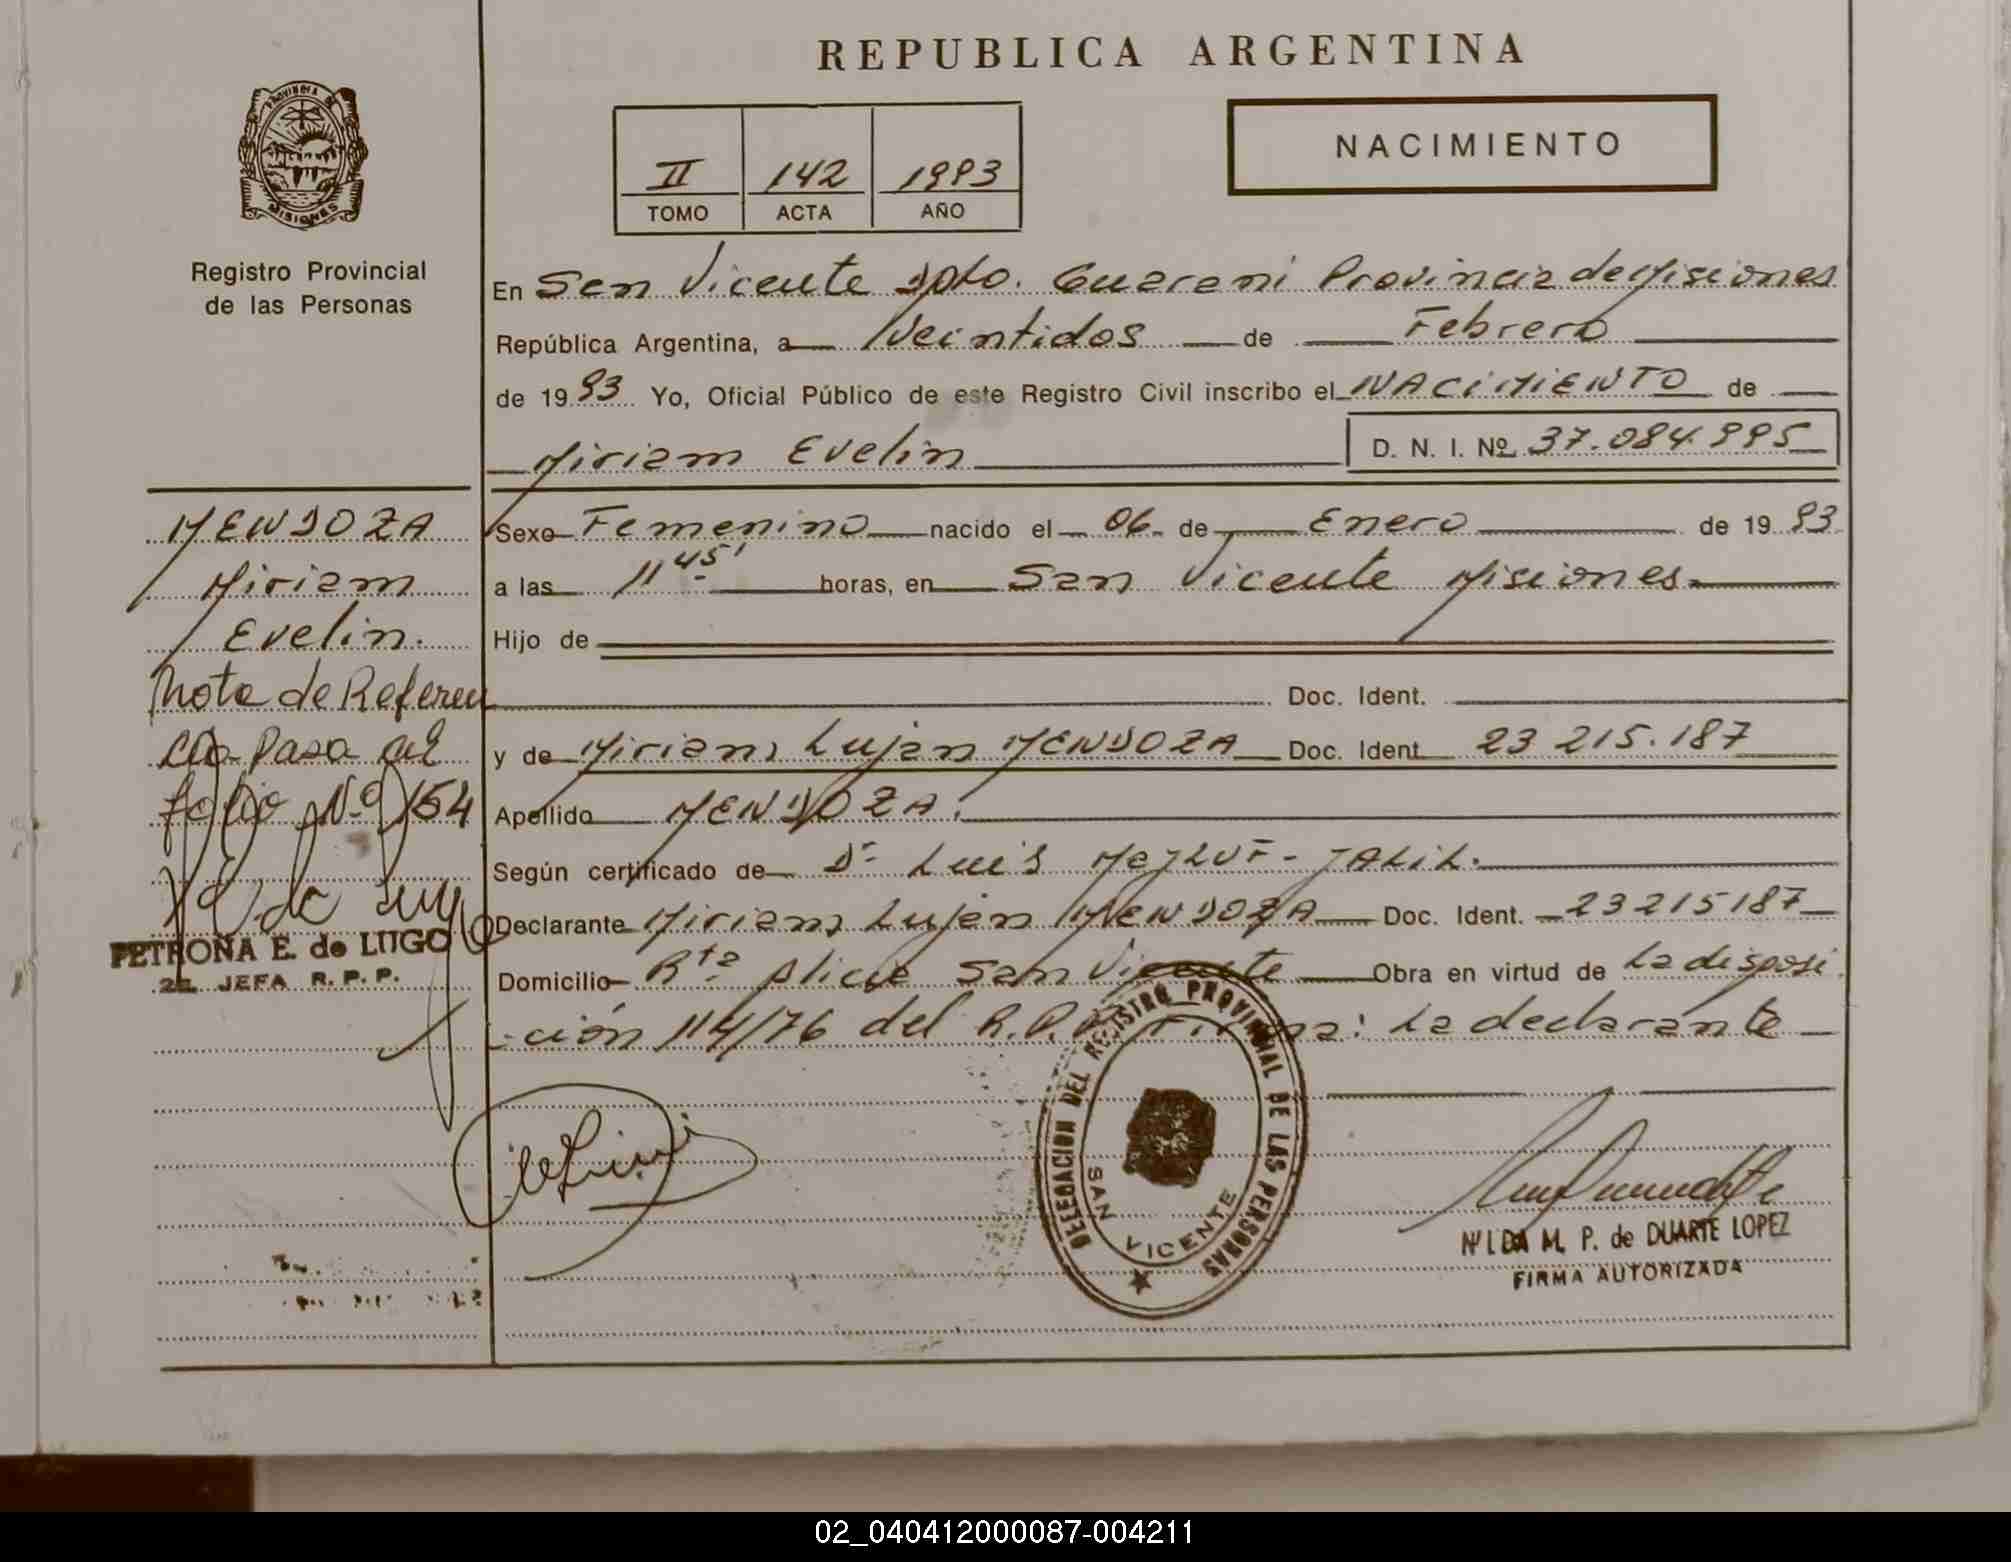 REPUBLICA ARGENTINA
PROVINCIA DE
MISIONES
Registro Provincial
de las Personas
II 142 1993
TOMO ACTA AÑO
NACIMIENTO
En San Vicente Dpto. Guarani Provincia de Misiones
República Argentina, a Veintidos de Febrero
de 19 93 Yo, Oficial Público de este Registro Civil inscribo el NACIMIENTO de
Miriam Evelin D. N. I. Nº 37.084.995
Sexo Femenino nacido el 06 de Enero de 19 93
a las 11 45' horas, en San Vicente Misiones
Hijo de
Doc. Ident.
y de Miriam Lujan MENDOZA Doc. Ident. 23 215.187
Apellido MENDOZA.
Según certificado de Dr Luis JALIL.
Declarante Miriam Lujan MENDOZA Doc. Ident. 23215187
Domicilio Rta Alicia San Vicente Obra en virtud de La disposi
-ción 114/76 del R.P.P. Firma: La declarante
MENDOZA
Miriam
Evelin.
Nota de Referen
cia Pasa al
folio Nº 154
PETRONA E. de LUGO
JEFA R. P. P.
DELEGACION DEL REGISTRO PROVINCIAL DE LAS PERSONAS
SAN VICENTE
NILDA M. P. de DUARTE LOPEZ
FIRMA AUTORIZADA
02_040412000087-004211